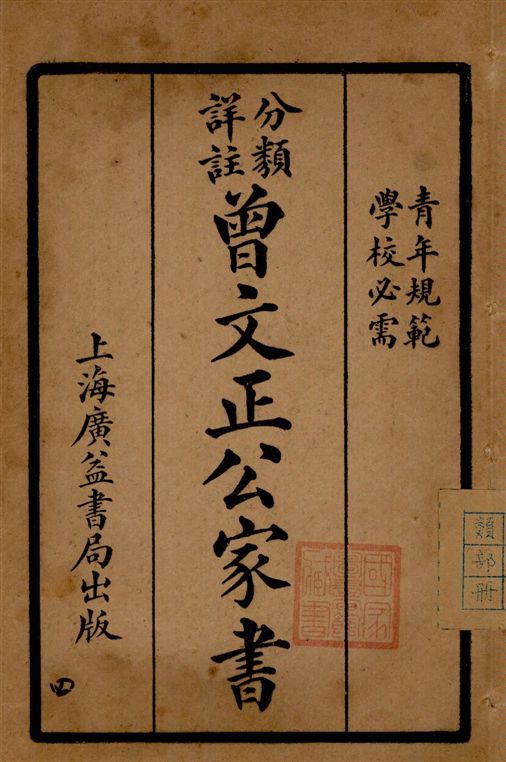 青年規範
學校必需
分類
詳註
曾文正公家書
上海廣益書局出版
四
國家圖書館藏書
類
部
冊